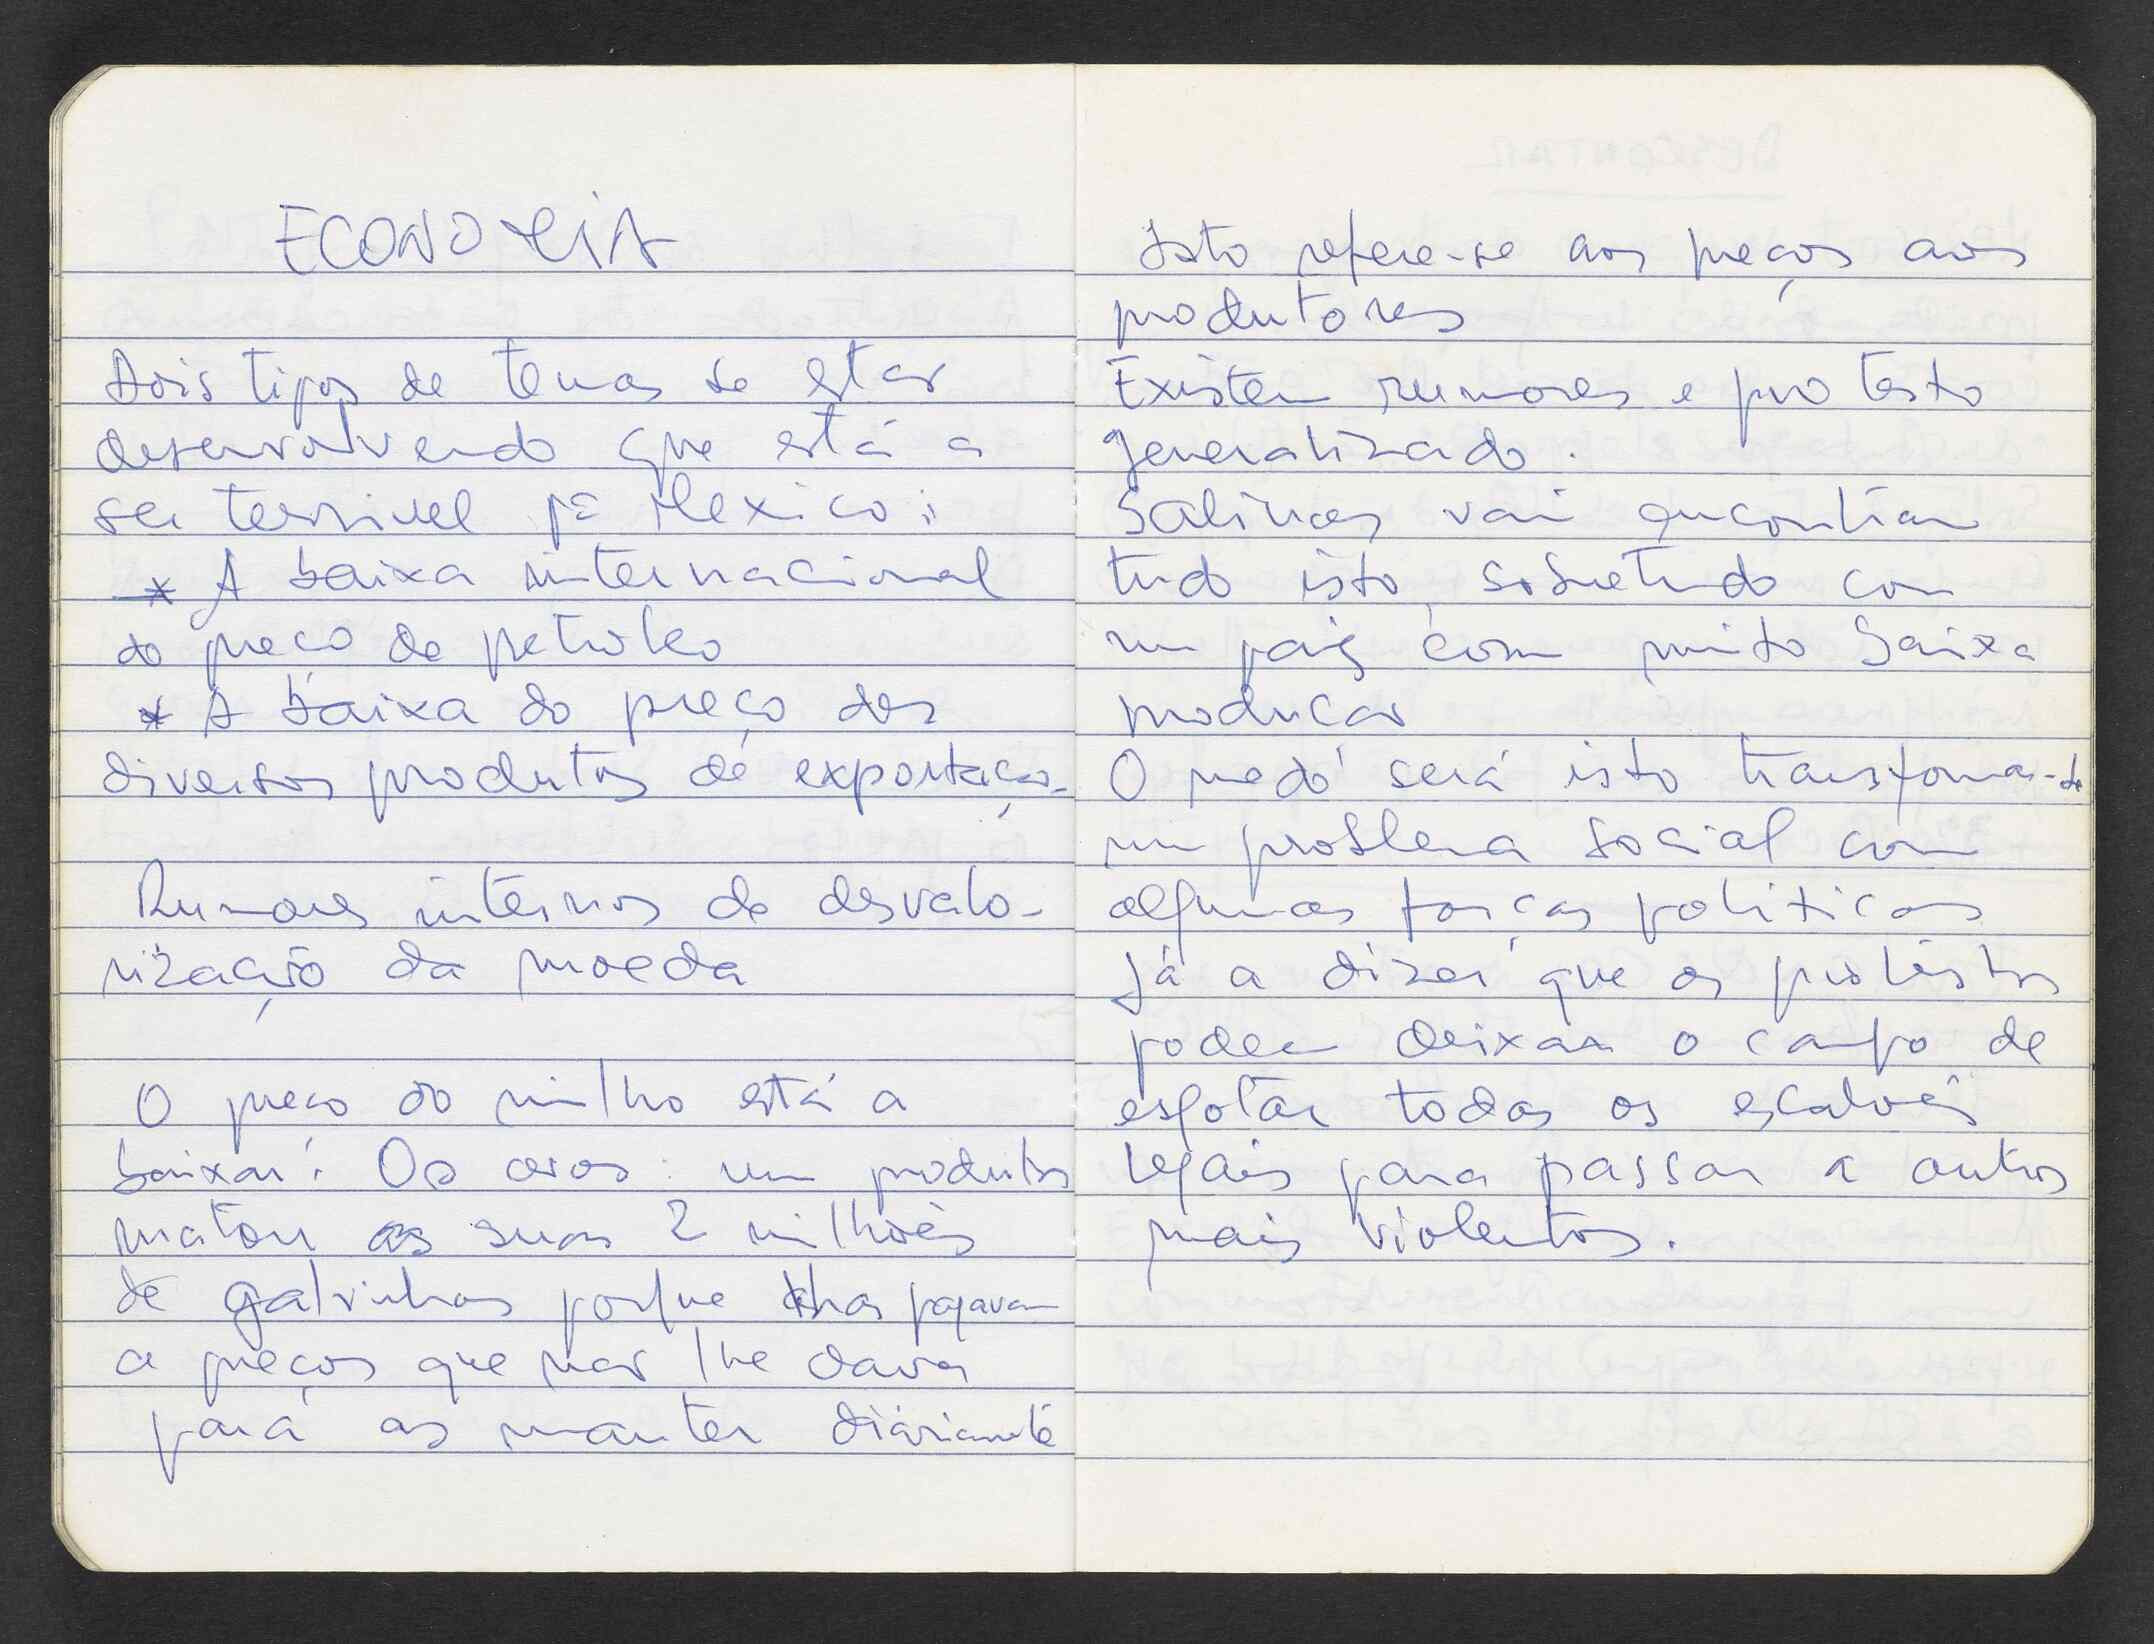 ECONOMIA
Dois tipos de temas se estar
desenvolvendo que está a
ser terrivel pª Mexico:
* A baixa internacional
do preço de petroleo
* A baixa do preço dos
diversos produtos de exportação
Rumores internos de desvalo-
rização da moeda
O preço do milho está a
baixar. Os ovos: um produtor
matou as suas 2 milhões
de galinhas porque lhas pagavam
a preços que nar lhe dava
para as manter diáriamente
Isto refere-se aos preços aos
produtores
Existem rumores e protesto
generalizado.
Salinas vai encontrar
tudo isto, sobretudo com
um pais com muito baixa
produçar
O medo será isto transformar-se
um problema social com
algumas forças politicas
já a dizer que os protestos
podem deixar o campo de
esgotar todos os escalões
legais para passar a outros
mais violentos.